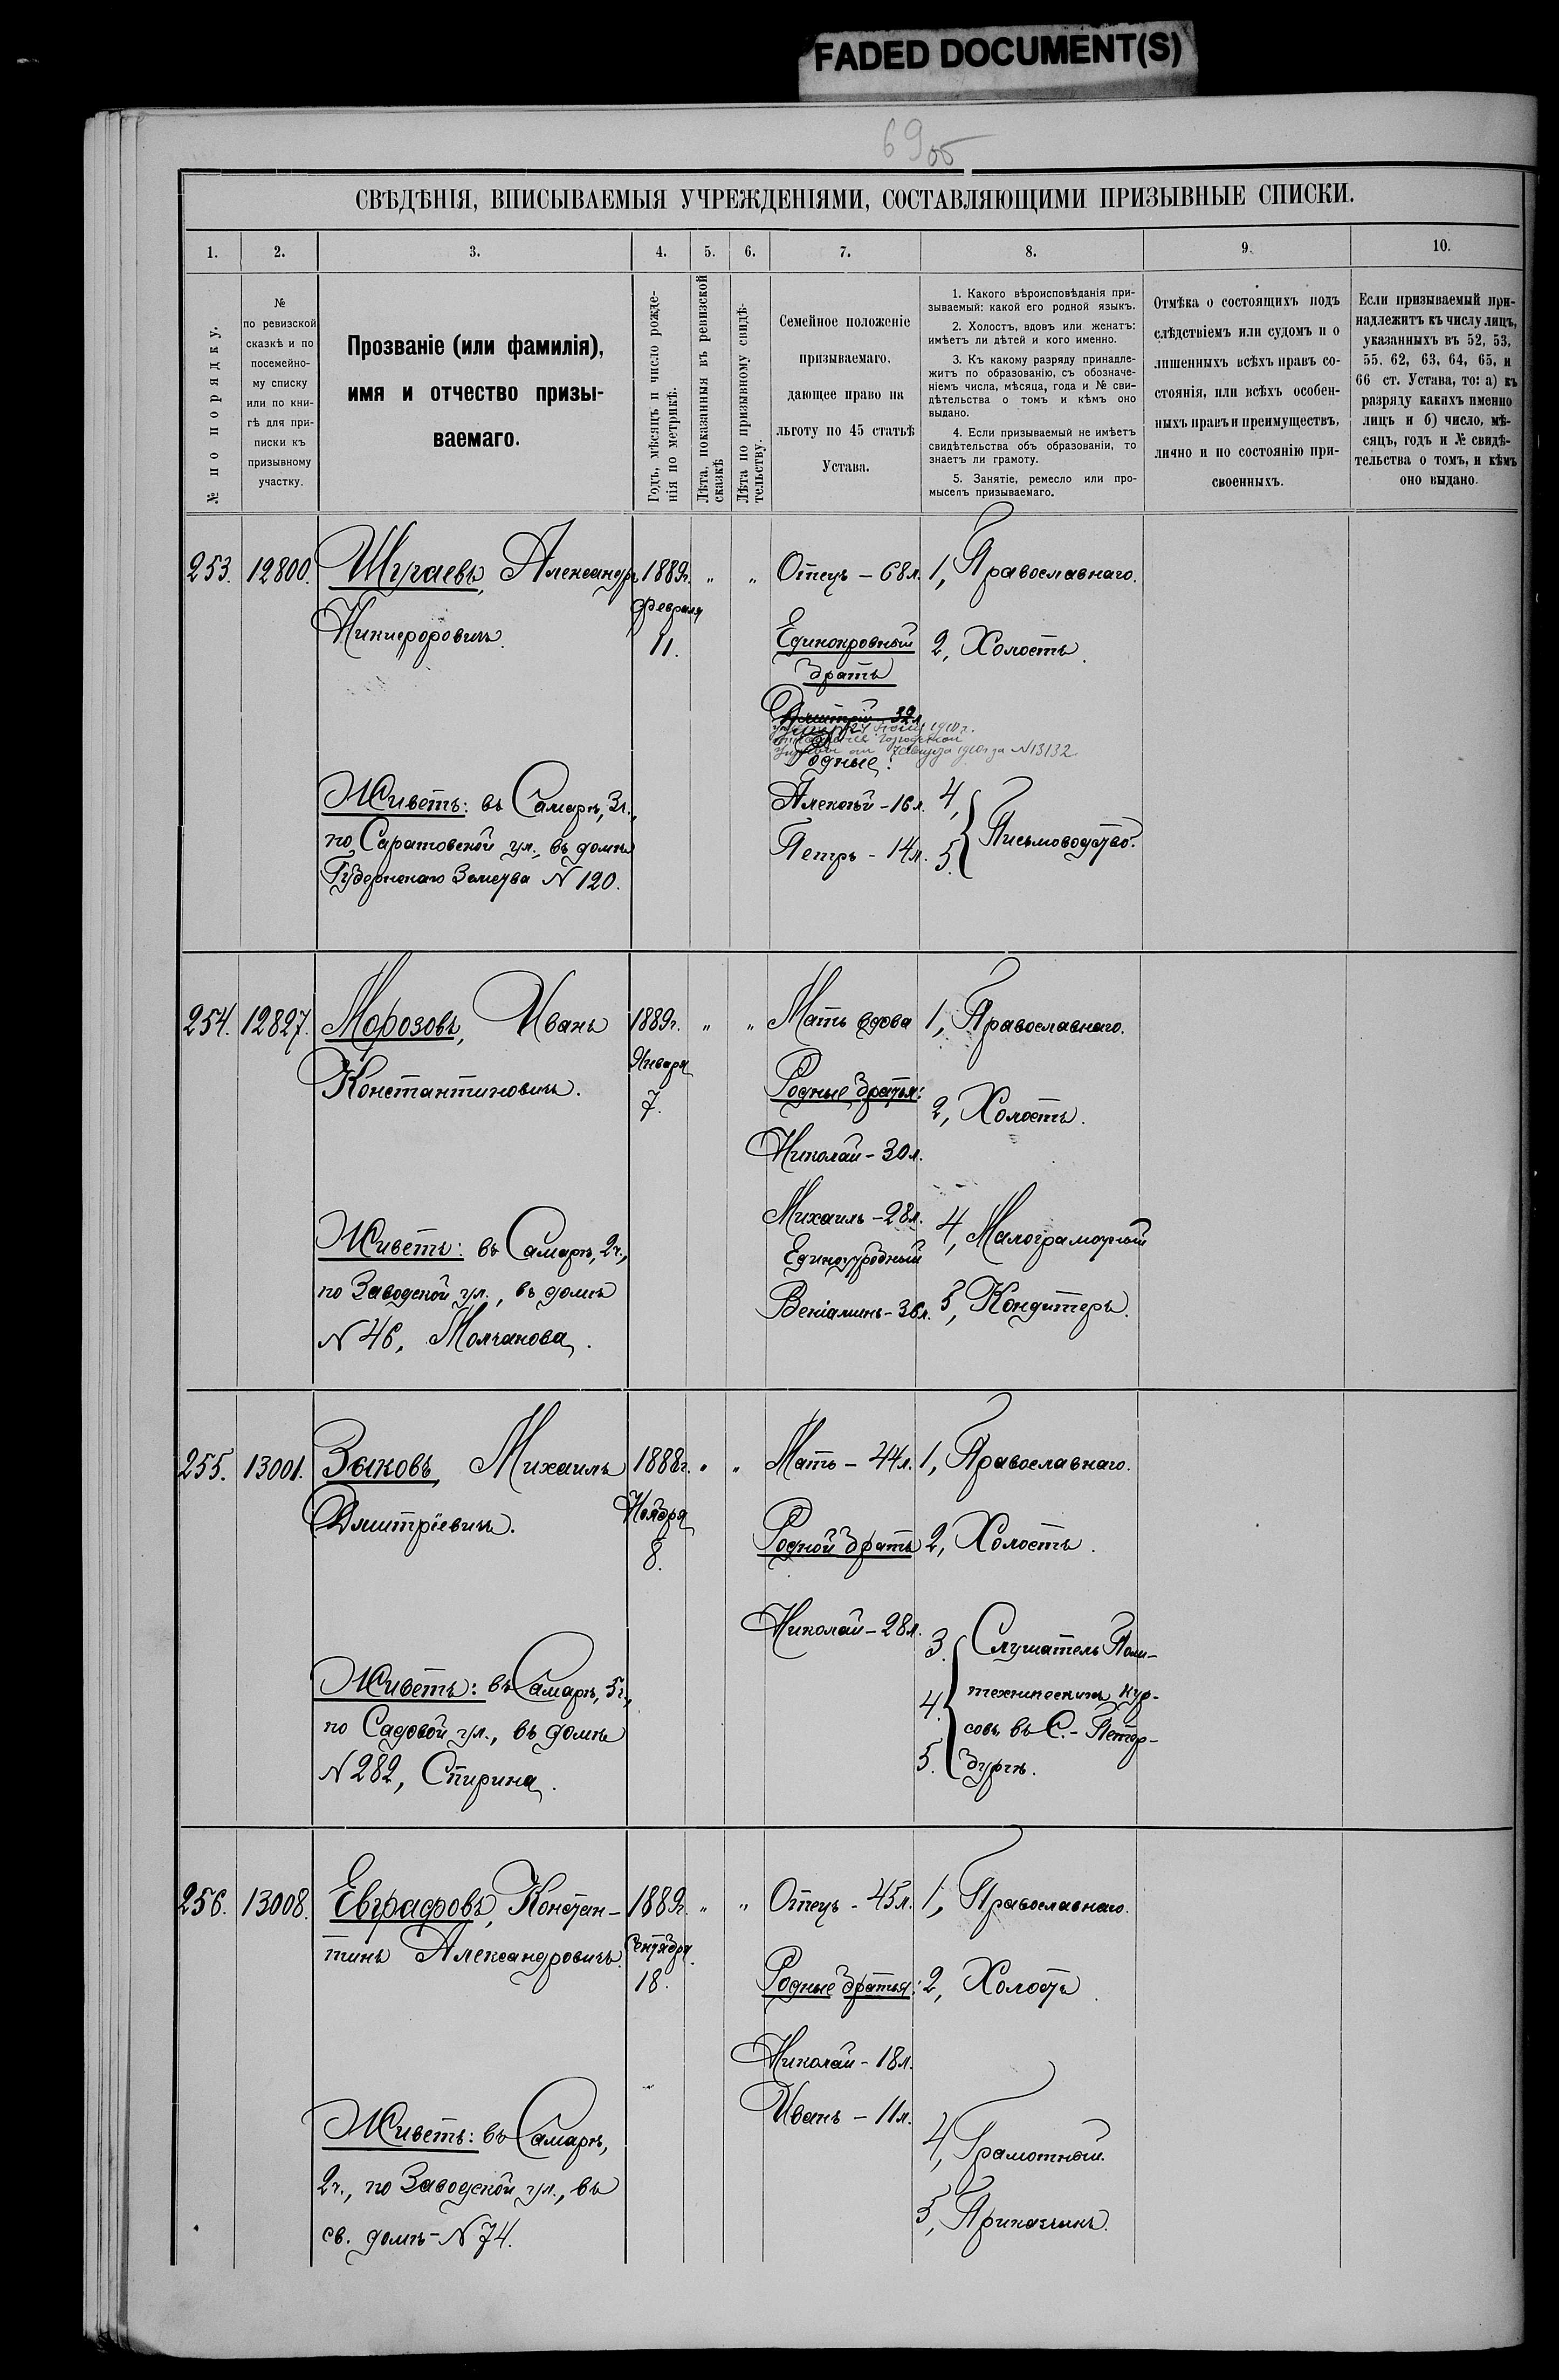 FADED DOCUMENT(S)
69об
СВѢДѢНІЯ, ВПИСЫВАЕМЫЯ УЧРЕЖДЕНІЯМИ, СОСТАВЛЯЮЩИМИ ПРИЗЫВНЫЕ СПИСКИ.
1. 2. 3. 4. 5. 6. 7. 8. 9. 10.
№ по порядку.
№
по ревизской
сказкѣ и по
посемейно-
му списку
или по кни-
гѣ для при-
писки къ
призывному
участку.
Прозваніе (или фамилія),
имя и отчество призы-
ваемаго.
Годъ, мѣсяцъ и число рожде-
нія по метрикѣ.
Лѣта, показанныя въ ревизской
сказкѣ
Лѣта по призывному свидѣ-
тельству.
Семейное положеніе
призываемаго,
дающее право на
льготу по 45 статьѣ
Устава.
1. Какого вѣроисповѣданія при-
зываемый: какой его родной языкъ.
2. Холостъ, вдовъ или женатъ:
имѣетъ ли дѣтей и кого именно.
3. Къ какому разряду принадле-
житъ по образованію, съ обозначе-
ніемъ числа, мѣсяца, года и № сви-
дѣтельства о томъ и кѣмъ оно
выдано.
4. Если призываемый не имѣетъ
свидѣтельства объ образованіи, то
знаетъ ли грамоту.
5. Занятіе, ремесло или про-
мыселъ призываемаго.
Отмѣка о состоящихъ подъ
слѣдствіемъ или судомъ и о
лишенныхъ всѣхъ правъ со-
стоянія, или всѣхъ особен-
ныхъ правъ и преимуществъ,
лично и по состоянію при-
своенныхъ.
Если призываемый при-
надлежитъ къ числу лицъ,
указанныхъ въ 52, 53,
55, 62, 63, 64, 65, и
66 ст. Устава, то: а) къ
разряду какихъ именно
лицъ и б) число, мѣ-
сяцъ, годъ и № свидѣ-
тельства о томъ, и кѣмъ
оно выдано.
253. 12800. Шугаевъ, Александръ 1889г. " " Отецъ – 68л. 1, Православнаго.
Никифоровичъ. Февраля
11.
Единокровный
братъ 2, Холостъ.
Дмитрій – 32л.
1910г.
1910г за N 13132
Родные:
Живетъ: въ Самарѣ, 3ч.,
по Саратовской ул., въ домѣ
Губернскаго Земства N 120.
Алексѣй – 16л. 4,
Петръ – 14л. 5. Письмоводство.
254. 12827. Морозовъ, Иванъ 1889г. " " Мать вдова 1, Православнаго.
Константиновичъ. Января
7.
Родные братья: 2, Холостъ.
Николай – 30л.
Михаилъ – 28л. 4, Малограмотный
Живетъ: въ Самарѣ, 2ч.,
по Заводской ул., въ домѣ
N 46, Молчанова.
Единоутробный
Веніаминъ – 36л. 5, Кондитеръ.
255. 13001. Зыковъ, Михаилъ 1888г. " " Мать – 44л. 1, Православнаго.
Дмитріевичъ. Ноября
8.
Родной братъ 2, Холостъ.
Николай – 28л. 3. Слушатель Поли-
4. техническихъ кур-
совъ въ С.-Петер-
5. бургѣ.
Живетъ: въ Самарѣ, 5ч.,
по Садовой ул., въ домѣ
N 282, Спирина.
256. 13008. Евграфовъ, Констан- 1889г. " " Отецъ – 45л. 1, Православнаго.
тинъ Александровичъ. Сентября
18.
Родные братья: 2, Холостъ.
Николай – 18л.
Иванъ – 11л.
Живетъ: въ Самарѣ,
2ч., по Заводской ул., въ
св. домѣ – N 74.
4, Грамотный.
5, Приказчикъ.